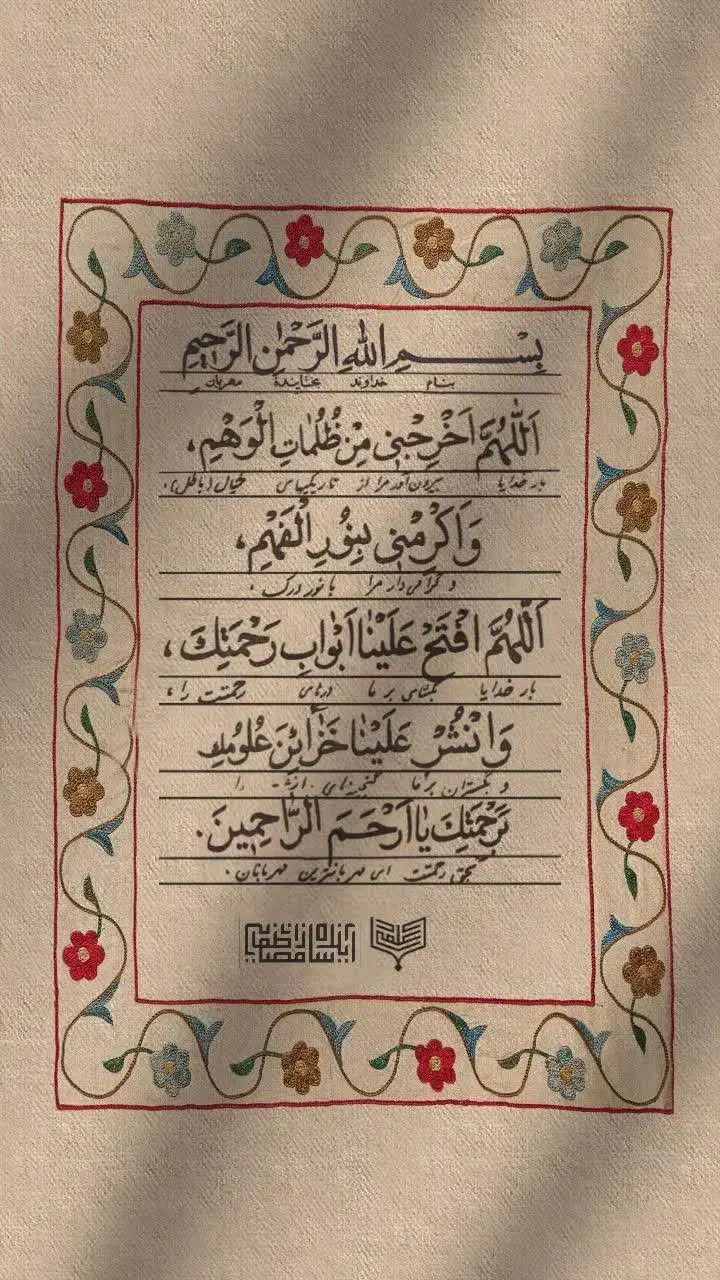 بِسْمِ اللهِ الرَّحْمٰنِ الرَّحِیمِ
بنام خداوند بخشایندهٔ مهربان
اَللّٰهُمَّ اَخْرِجْنِی مِنْ ظُلُمٰاتِ الْوَهْمِ،
بار خدایا بیرون آور مرا از تاریکیهای خیال (باطل)،
وَاَکْرِمْنِی بِنُورِ الْفَهْمِ،
و گرامی دار مرا با نور درک،
اَللّٰهُمَّ افْتَحْ عَلَیْنٰا اَبْوٰابَ رَحْمَتِکَ،
بار خدایا بگشای بر ما درهای رحمتت را،
وَانْشُرْ عَلَیْنٰا خَزٰائِنَ عُلُومِکَ
و بگستران بر ما گنجینه‌های را
بِرَحْمَتِکَ یٰا اَرْحَمَ الرّٰاحِمِینَ.
بحق رحمتت ای مهربانترین مهربانان.